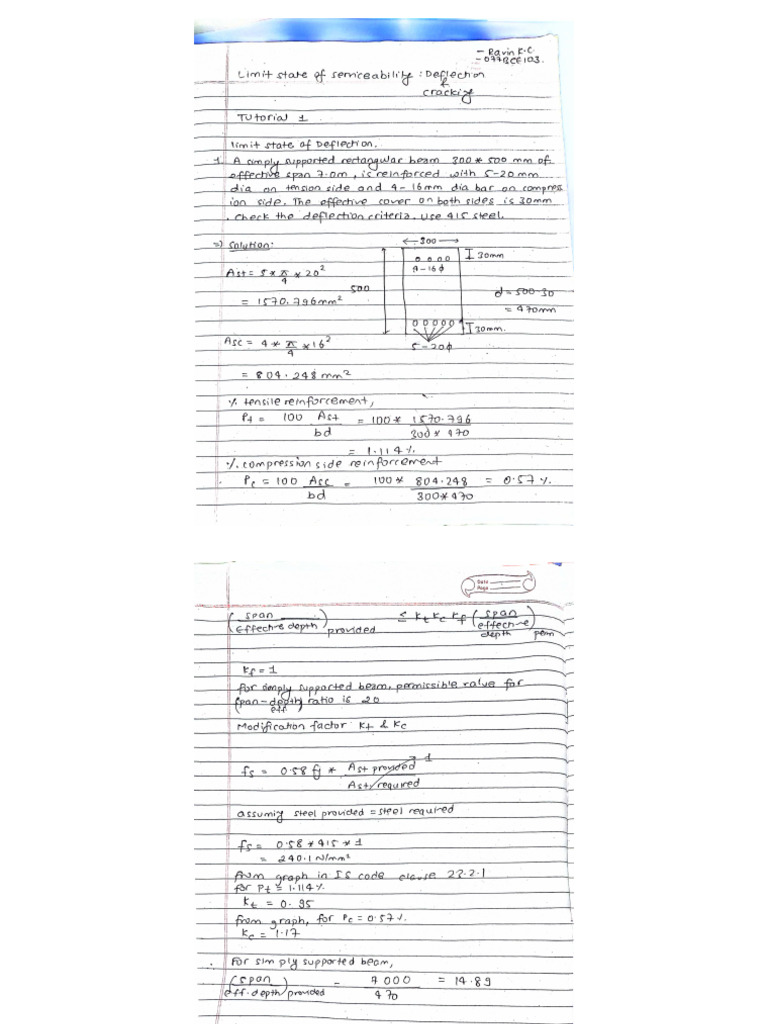 - Ravin K.C.
- 077BCE103.
Limit state of serviceability : Deflection
&
cracking
Tutorial 1
limit state of Deflection.
1. A simply supported rectangular beam 300 * 500 mm of
effective span 7.0m, is reinforced with 5-20 mm
dia on tension side and 4-16mm dia bar on compress
ion side. The effective cover on both sides is 30mm
. check the deflection criteria. Use 415 steel.
=> Solution:
300
30mm
4-16ϕ
Ast = 5 * π/4 * 20²
500
d = 500-30
= 1570.796mm²
= 470mm
30mm.
Asc = 4 * π/4 * 16²
5-20ϕ
= 804.248 mm²
% tensile reinforcement,
Pt = 100 Ast/bd = 100 * 1570.796/300 * 470
= 1.114 %
% compression side reinforcement
Pc = 100 Asc/bd = 100 * 804.248/300 * 470 = 0.57 %
Date
Page
(span/Effective depth) provided ≤ Kt Kc Kf (span/effective depth) perm
Kf = 1
for simply supported beam, permissible value for
(span-depth) ratio is 20
eff
Modification factor Kt & Kc
fs = 0.58 fy * Ast provided/Ast required 1
assuming steel provided = steel required
fs = 0.58 * 415 * 1
= 240.1 N/mm²
from graph in IS code clause 23.2.1
for Pt = 1.114 %
Kt = 0.95
from graph, for Pc = 0.57 %
Kc = 1.17
∴ For simply supported beam,
(span/eff. depth) provided = 7000/470 = 14.89